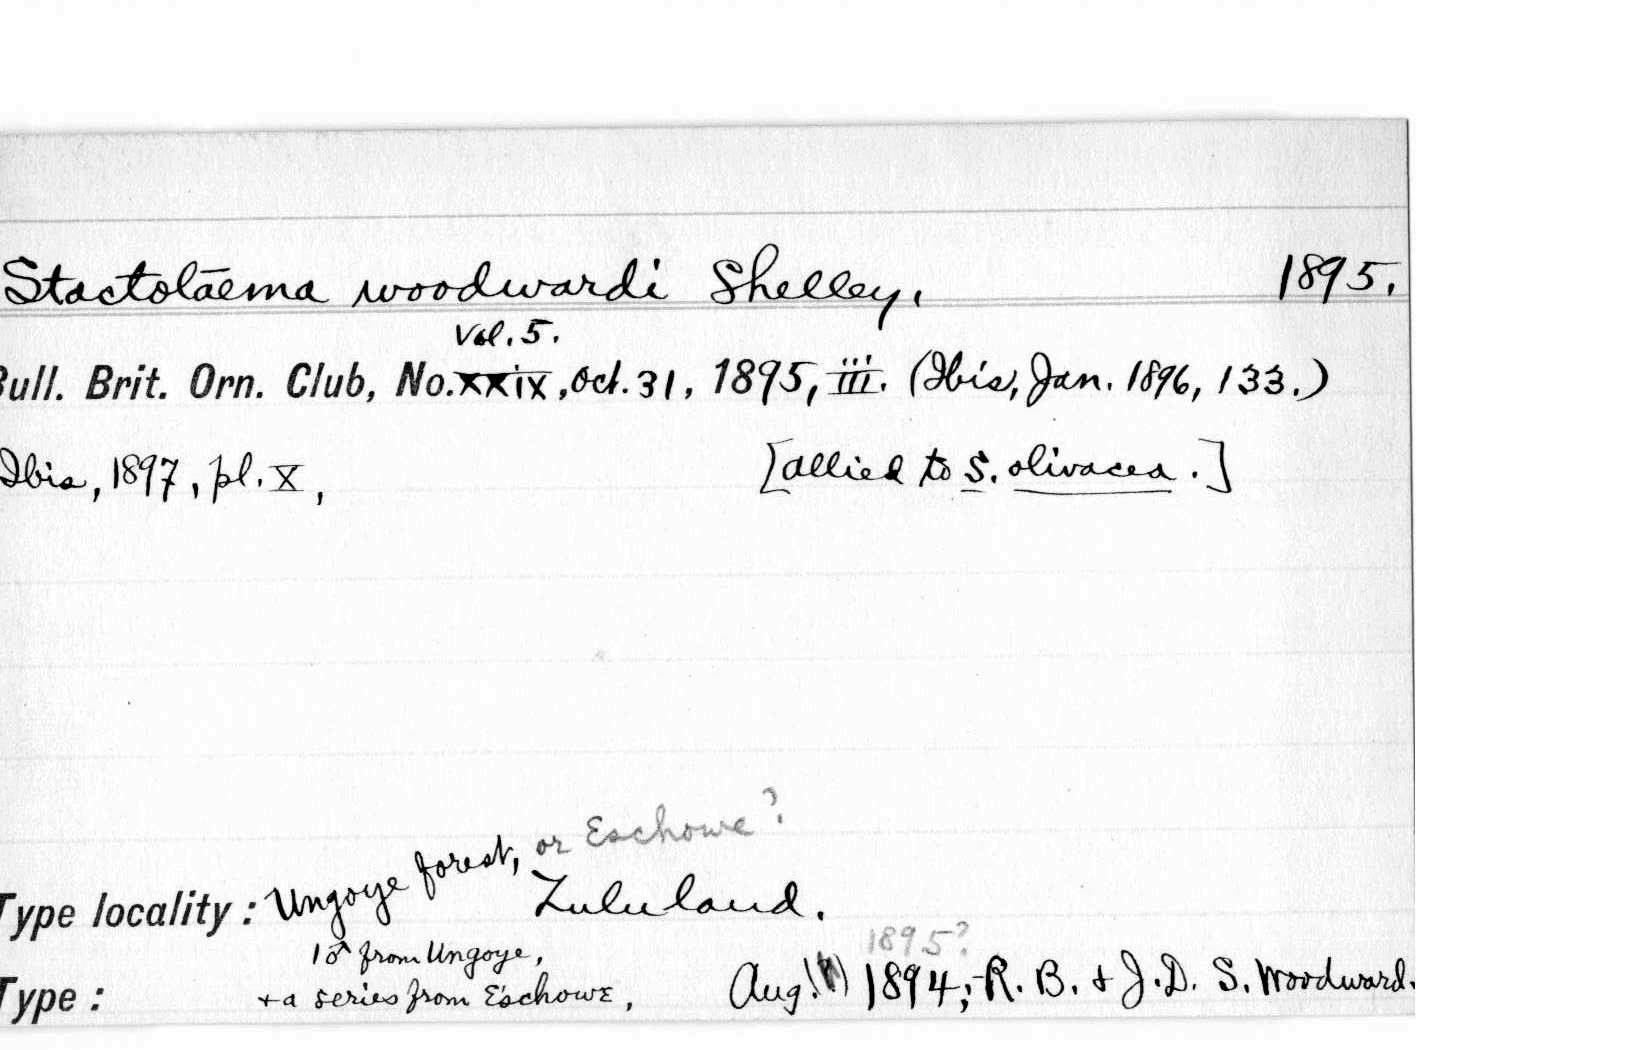 Stactolāema woodwardi Shelley, 1895.
Vol. 5.
Bull. Brit. Orn. Club, No. xxix, Oct. 31, 1895, iii. (Ibis, Jan. 1896, 133.)
Ibis, 1897, pl. X, [allied to S. olivacea.]
or Eschowe?
Type locality: Ungoye forest, Zululand.
1895?
1♂ from Ungoye,
Type: + a series from Eschowe, Aug. 1894; R. B. + J. D. S. Woodward.